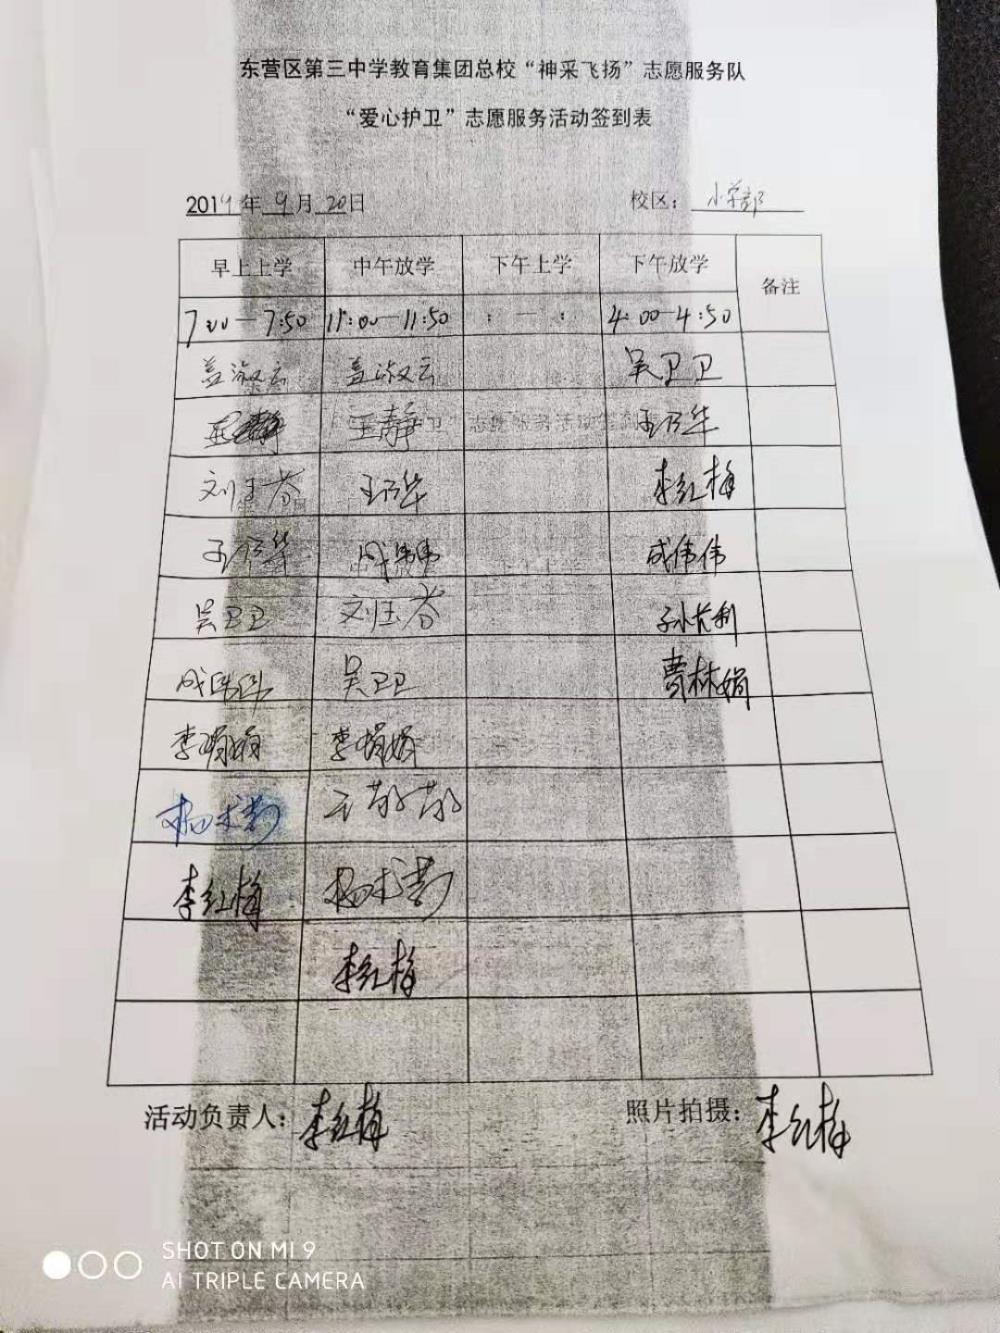 东营区第三中学教育集团总校“神采飞扬”志愿服务队
“爱心护卫”志愿服务活动签到表
2019年 9月 20日 校区：小学部
早上上学 中午放学 下午上学 下午放学 备注
7:00—7:50 11:00—11:50 : — : 4:00-4:50
盖淑云 盖淑云 吴卫卫
王静 王静 王乃华
刘玉芬 王乃华 李红梅
王乃华 成伟伟 成伟伟
吴卫卫 刘玉芬 孙光利
成伟伟 吴卫卫 曹林娟
李娟娟 李娟娟
李红梅
李红梅
活动负责人：李红梅 照片拍摄：李红梅
SHOT ON MI 9
AI TRIPLE CAMERA